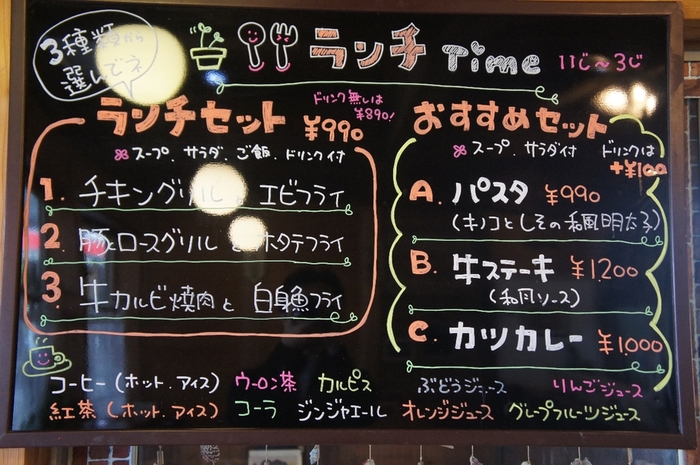 3種類から
選んでネ
ランチ Time 11じ〜3じ
ランチセット ¥990
ドリンク無しは
¥890!
スープ、サラダ、ご飯、ドリンク付
1. チキングリル エビフライ
2. 豚ロースグリル と ホタテフライ
3. 牛カルビ焼肉と 白身魚フライ
おすすめセット
スープ、サラダ付 ドリンクは
+¥100
A. パスタ ¥990
(キノコとしその和風明太子)
B. 牛ステーキ ¥1,200
(和風ソース)
C. カツカレー ¥1,000
コーヒー(ホット.アイス) ウーロン茶 カルピス ぶどうジュース りんごジュース
紅茶(ホット.アイス) コーラ ジンジャエール オレンジジュース グレープフルーツジュース